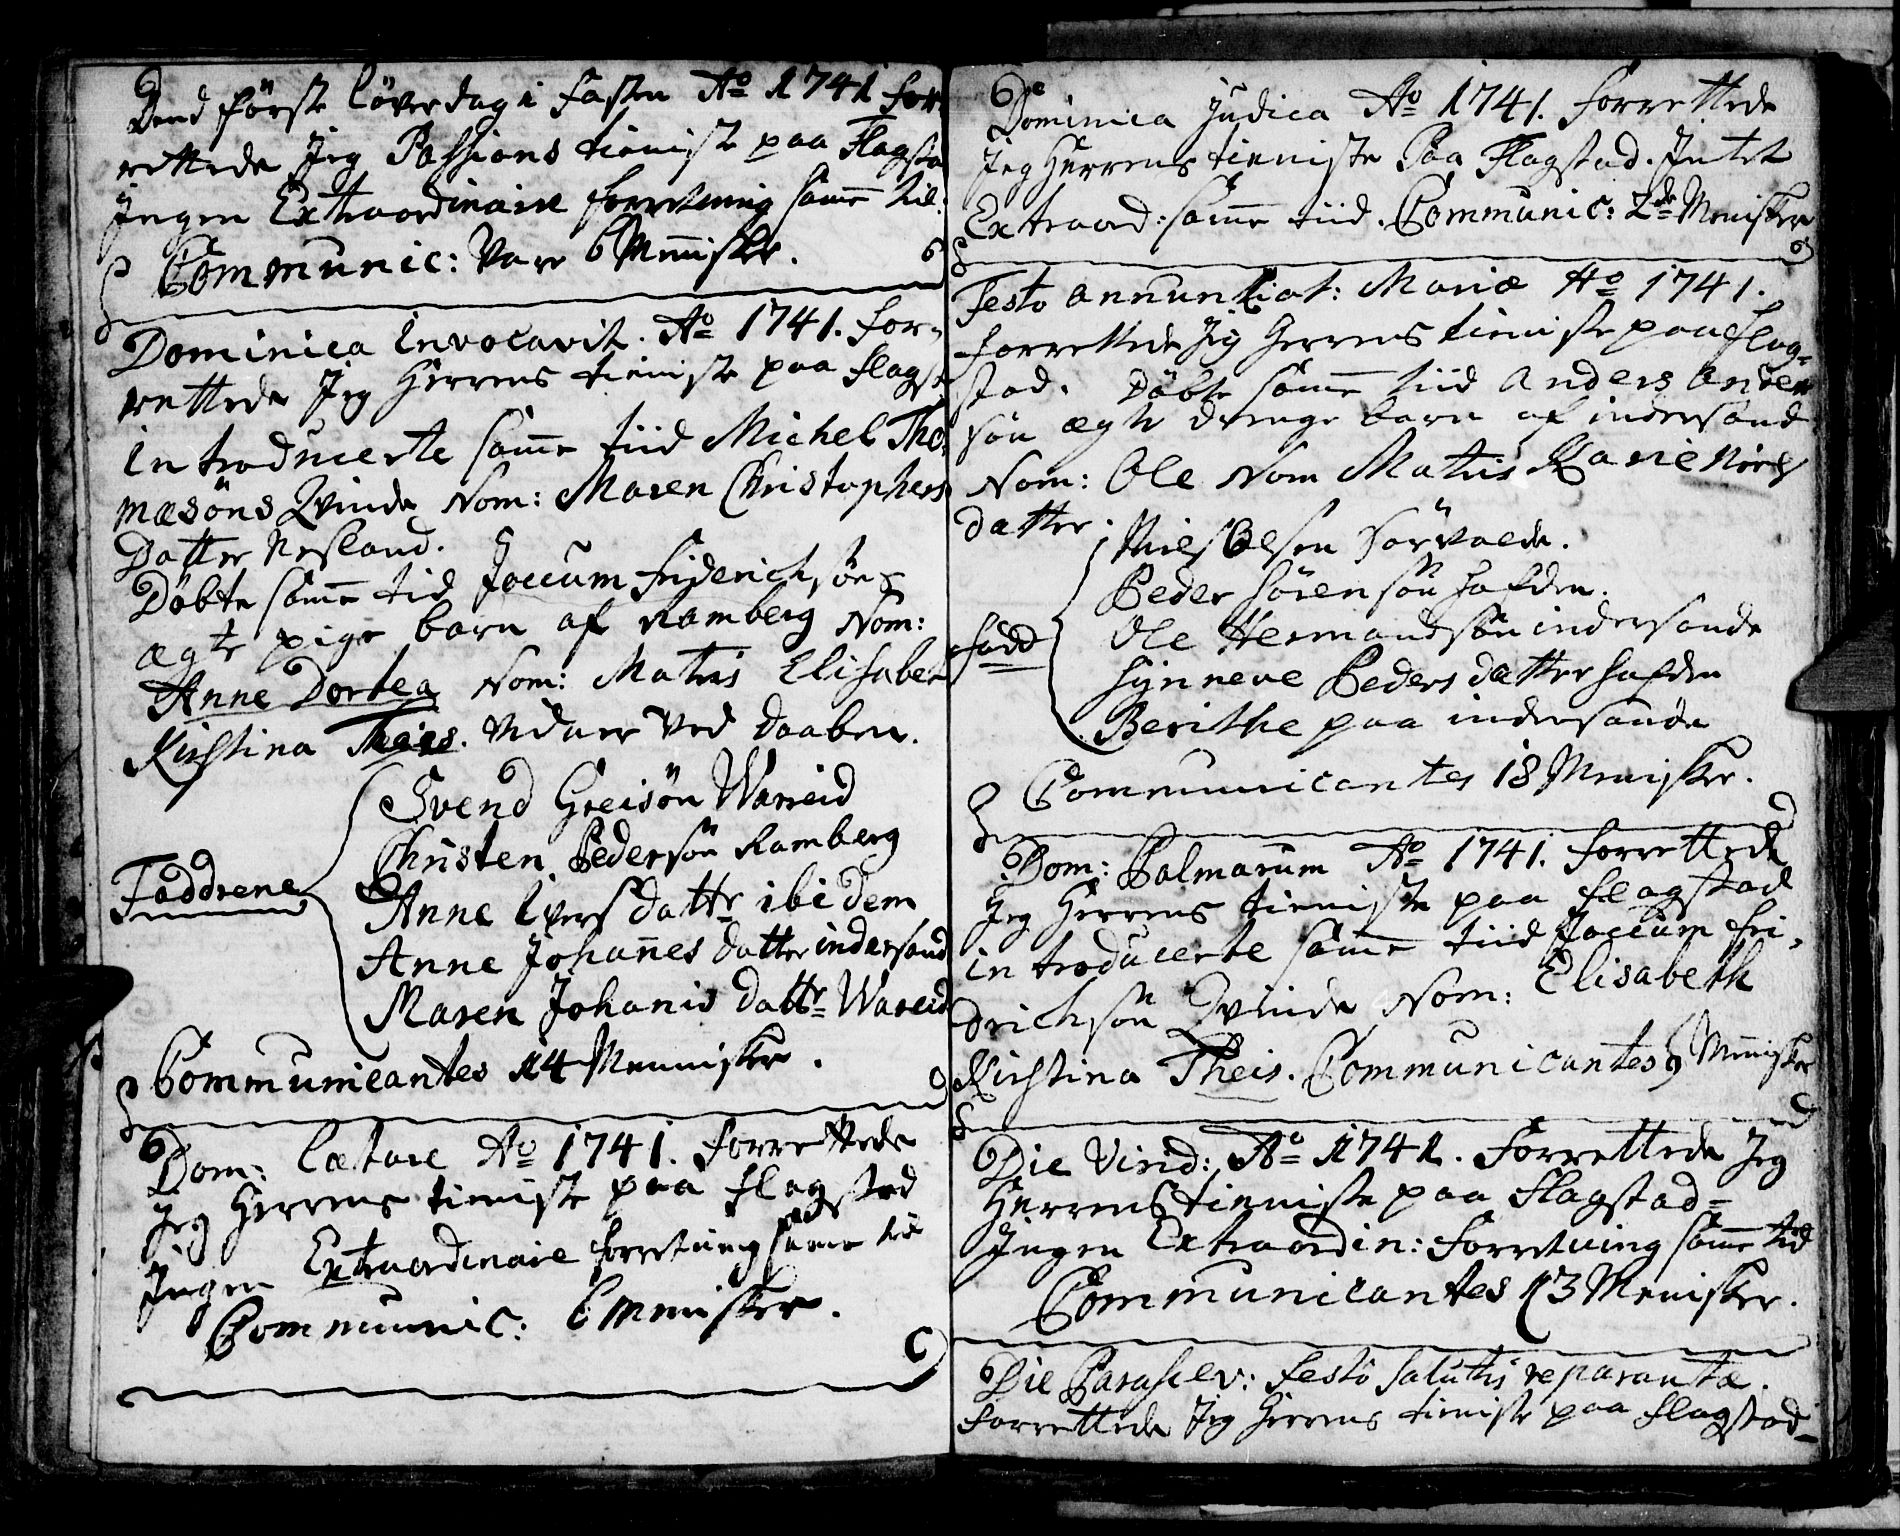 Dend første Løverdag i Fasten Aō 1741 for
rettede Jeg Passions tieniste paa Flagsta
Ingen Extraordinaire forretning samē tid.
Communic: Vare 6 Mennisker.
Dominica Invocavit. Aō 1741. for-
rettede Jeg Herrens tieniste paa Flagst
Introducerte samē tiid Michel Tho-
mæsöns Qvinde Nom: Maren Christophers
Datter Nesland.
Döbte samē tid Joccum Friderichsön
ægte pige barn af Ramberg Nom:
Anne Dortea Nom: Matris Elisabet
Kirstina Theis. Vidner Ved Daaben.
Faddrene
Svend Greisön Wareid
Christen Pedersön Ramberg
Anne Iversdattr ibidem
Anne Johañes datter indersand
Maren Johanis Dattr Wareid
Communicantes 14 Mennisker.
Dom: Lætare Aō 1741. Forrettede
Jeg Herrens tieniste paa Flagstad
Ingen Extraordinaire forretning samē tid
Communic: 6 Mennisker.
Dominica Judica Aō 1741. Forrettede
Jeg Herrens tienniste Paa Flagstad. Intet
Extraord: samē tiid. Communic: 2de Menisker
Festo Annuntiat: Mariæ Aō 1741.
forrettede Jeg Herrens tieniste paa Flag-
stad. Döbte samē tiid Anders Anders
sön ægte drenge barn af indersand
Nom: Ole Nom Matris Karie Niels
datter.
Fadd
Niels Olsen
Peder Sörensön
Ole Hermandsön indersande
Synneve Peders datter
Berithe paa indersande
Communicantes 18 Menisker.
Dom: Palmarum Aō 1741. Forrettede
Jeg Herrens tieniste paa Flagstad
introducerte samē tiid Joccum Fri-
drichsön Qvinde Nom: Elisabeth
Kirstina Theis. Communicantes 9 Menisker
Die Virid: Aō 1741. Forrettede Jeg
Herrens tienniste paa Flagstad-
Ingen Extraordin: Forretning samē tid
Communicantes 13 Menisker.
Die Parascev: Festo salutis reparantæ.
forrettede Jeg Herrens tieniste paa Flagstad-